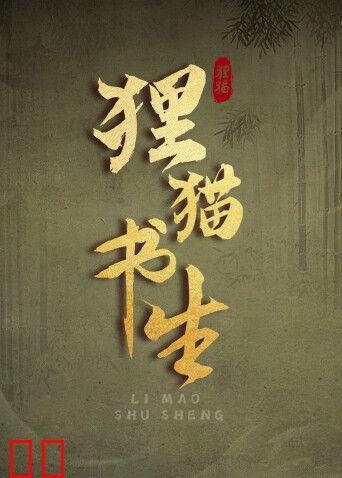 狸猫
书生
狸猫
LI MAO
SHU SHENG